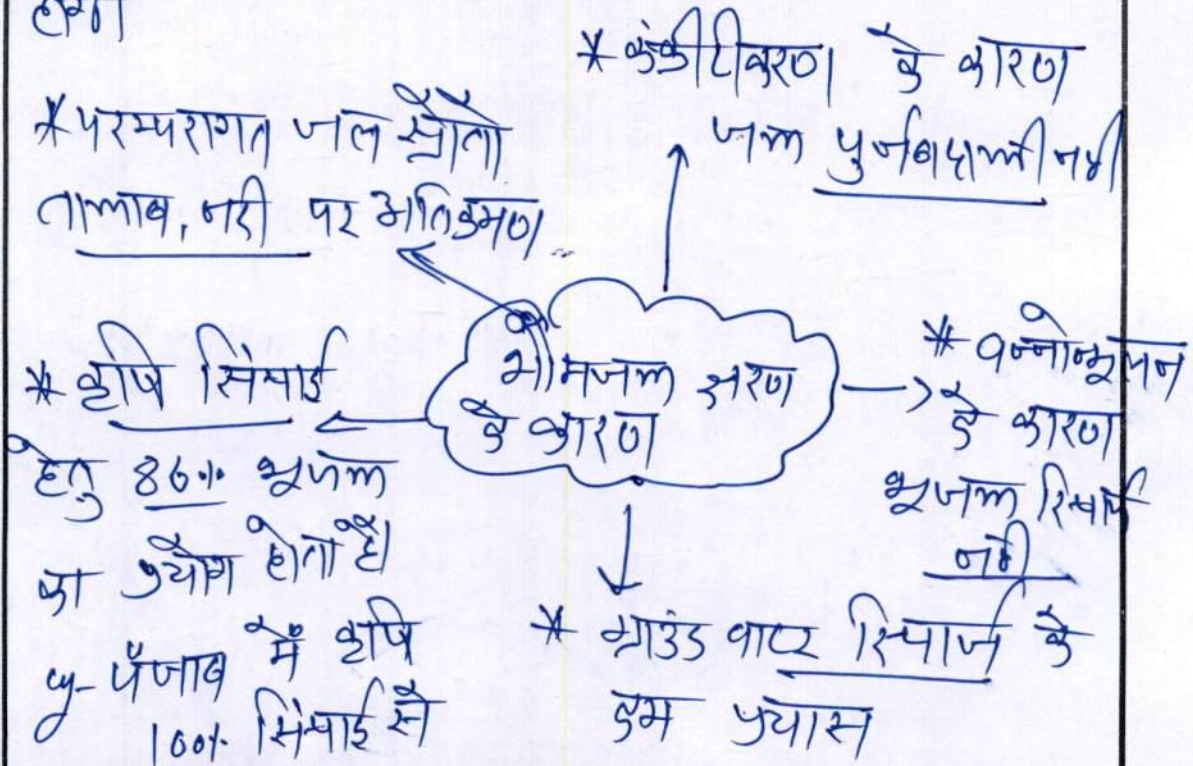 होगा
* परम्परागत जल स्रोतों
तालाब, नदी पर अतिक्रमण
* कंक्रीटीकरण के कारण
जल पुर्नबदाली नही
भौमजल क्षरण
के कारण
* कृषि सिंचाई
हेतु 86% भूजल
का प्रयोग होता है।
पंजाब में कृषि
100% सिंचाई से
* वनोन्मूलन
के कारण
भूजल रिचार्ज
नही
* ग्राउंड वाटर रिचार्ज के
कम प्रयास